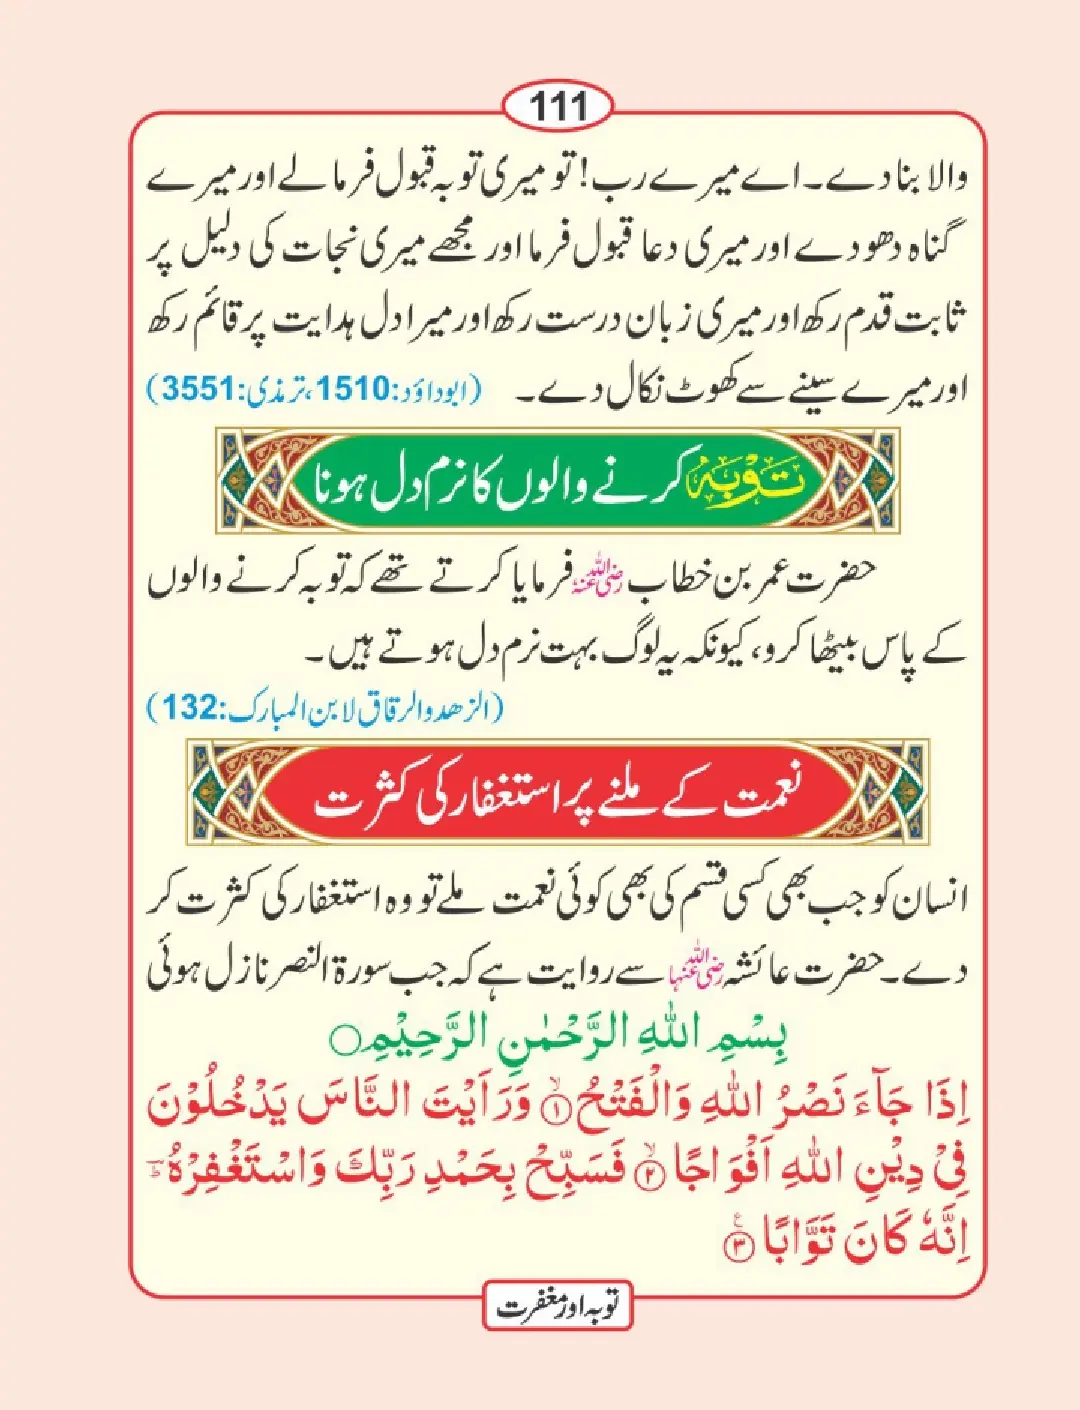 111
والا بنا دے۔ اے میرے رب! تو میری توبہ قبول فرما لے اور میرے
گناہ دھو دے اور میری دعا قبول فرما اور مجھے میری نجات کی دلیل پر
ثابت قدم رکھ اور میری زبان درست رکھ اور میرا دل ہدایت پر قائم رکھ
اور میرے سینے سے کھوٹ نکال دے۔ (ابوداؤد:1510، ترمذی:3551)
توبہ کرنے والوں کا نرم دل ہونا
حضرت عمر بن خطاب رضی اللہ عنہ فرمایا کرتے تھے کہ توبہ کرنے والوں
کے پاس بیٹھا کرو، کیونکہ یہ لوگ بہت نرم دل ہوتے ہیں۔
(الزھد والرقاق لابن المبارک:132)
نعمت کے ملنے پر استغفار کی کثرت
انسان کو جب بھی کسی قسم کی بھی کوئی نعمت ملے تو وہ استغفار کی کثرت کر
دے۔ حضرت عائشہ رضی اللہ عنہا سے روایت ہے کہ جب سورۃ النصر نازل ہوئی
بِسْمِ اللهِ الرَّحْمٰنِ الرَّحِيْمِ○
اِذَا جَآءَ نَصْرُ اللهِ وَالْفَتْحُ ۙ۝۱ وَرَاَيْتَ النَّاسَ يَدْخُلُوْنَ
فِيْ دِيْنِ اللهِ اَفْوَاجًا ۙ۝۲ فَسَبِّحْ بِحَمْدِ رَبِّكَ وَاسْتَغْفِرْهُ ؕ
اِنَّهٗ كَانَ تَوَّابًا ۝۳ ع
توبہ اور مغفرت